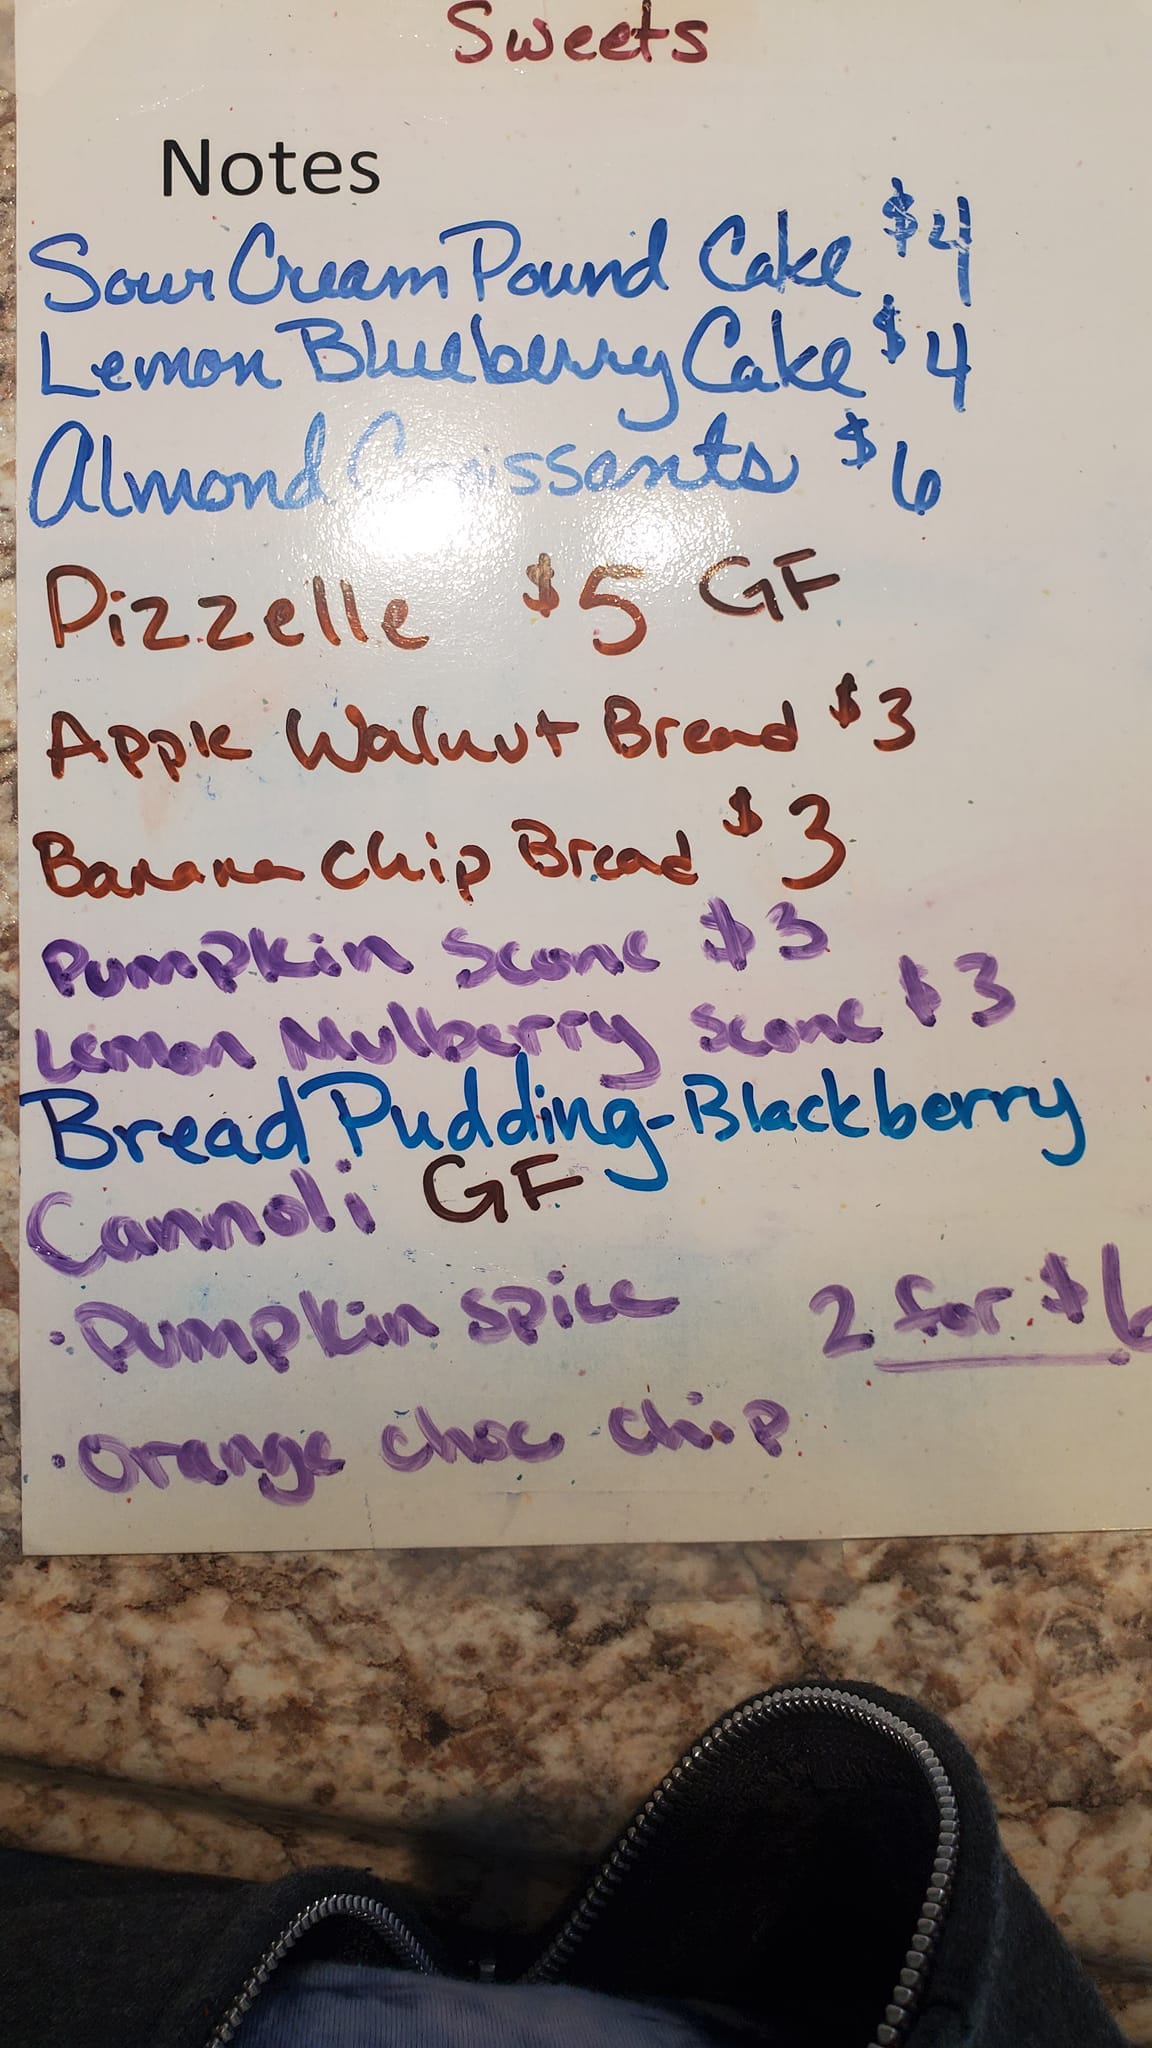 Sweets
Notes
Sour Cream Pound Cake $4
Lemon Blueberry Cake $4
Almond Croissants $6
Pizzelle $5 GF
Apple Walnut Bread $3
Banana Chip Bread $3
Pumpkin Scone $3
Lemon Mulberry Scone $3
Bread Pudding-Blackberry
Cannoli GF
• Pumpkin Spice 2 for $6
• Orange choc chip